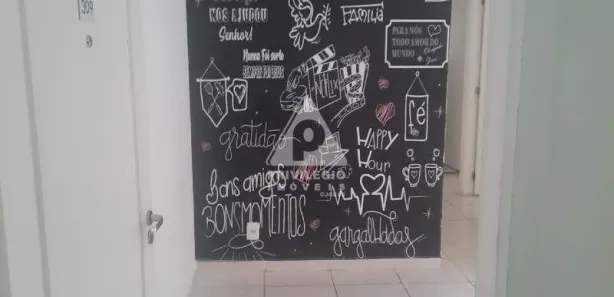 309
NOS AJUDOU
Senhor!
FAMÍLIA
PARA NÓS
TODO AMOR DO
MUNDO
Nunca Foi sorte
SEMPRE FOI DEUS
fé
gratidão
HAPPY
Hour
P
PRIVILÉGIO
IMÓVEIS
Bons amigos
BONS MOMENTOS
gargalhadas